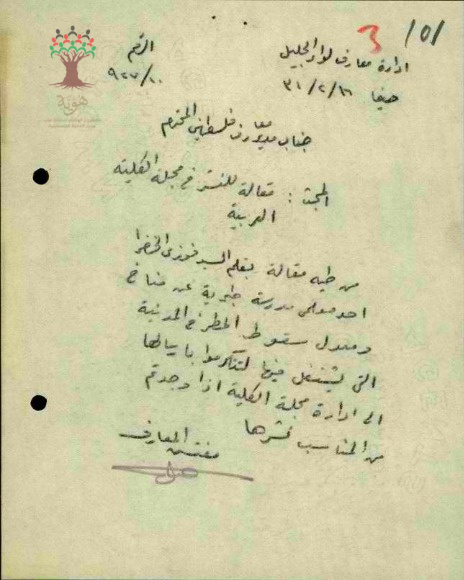 3 101
ادارة معارف لواء الجليل
حيفا ١٦/٢/٣١
الرقم
٩٢٧/١٠
هوية
جناب مدير معارف فلسطين المحترم
المبحث : مقالة للنشر في مجلة الكلية
العربية
من طيه مقالة بقلم السيد فوزي الخضرا
احد معلمي مدرسة طبرية عن مناخ
ومعدل سقوط المطر في المدينة
التي يشتغل فيها لتتكرموا بارسالها
الى ادارة مجلة الكلية اذا وجدتم
من المناسب نشرها
مفتش المعارف